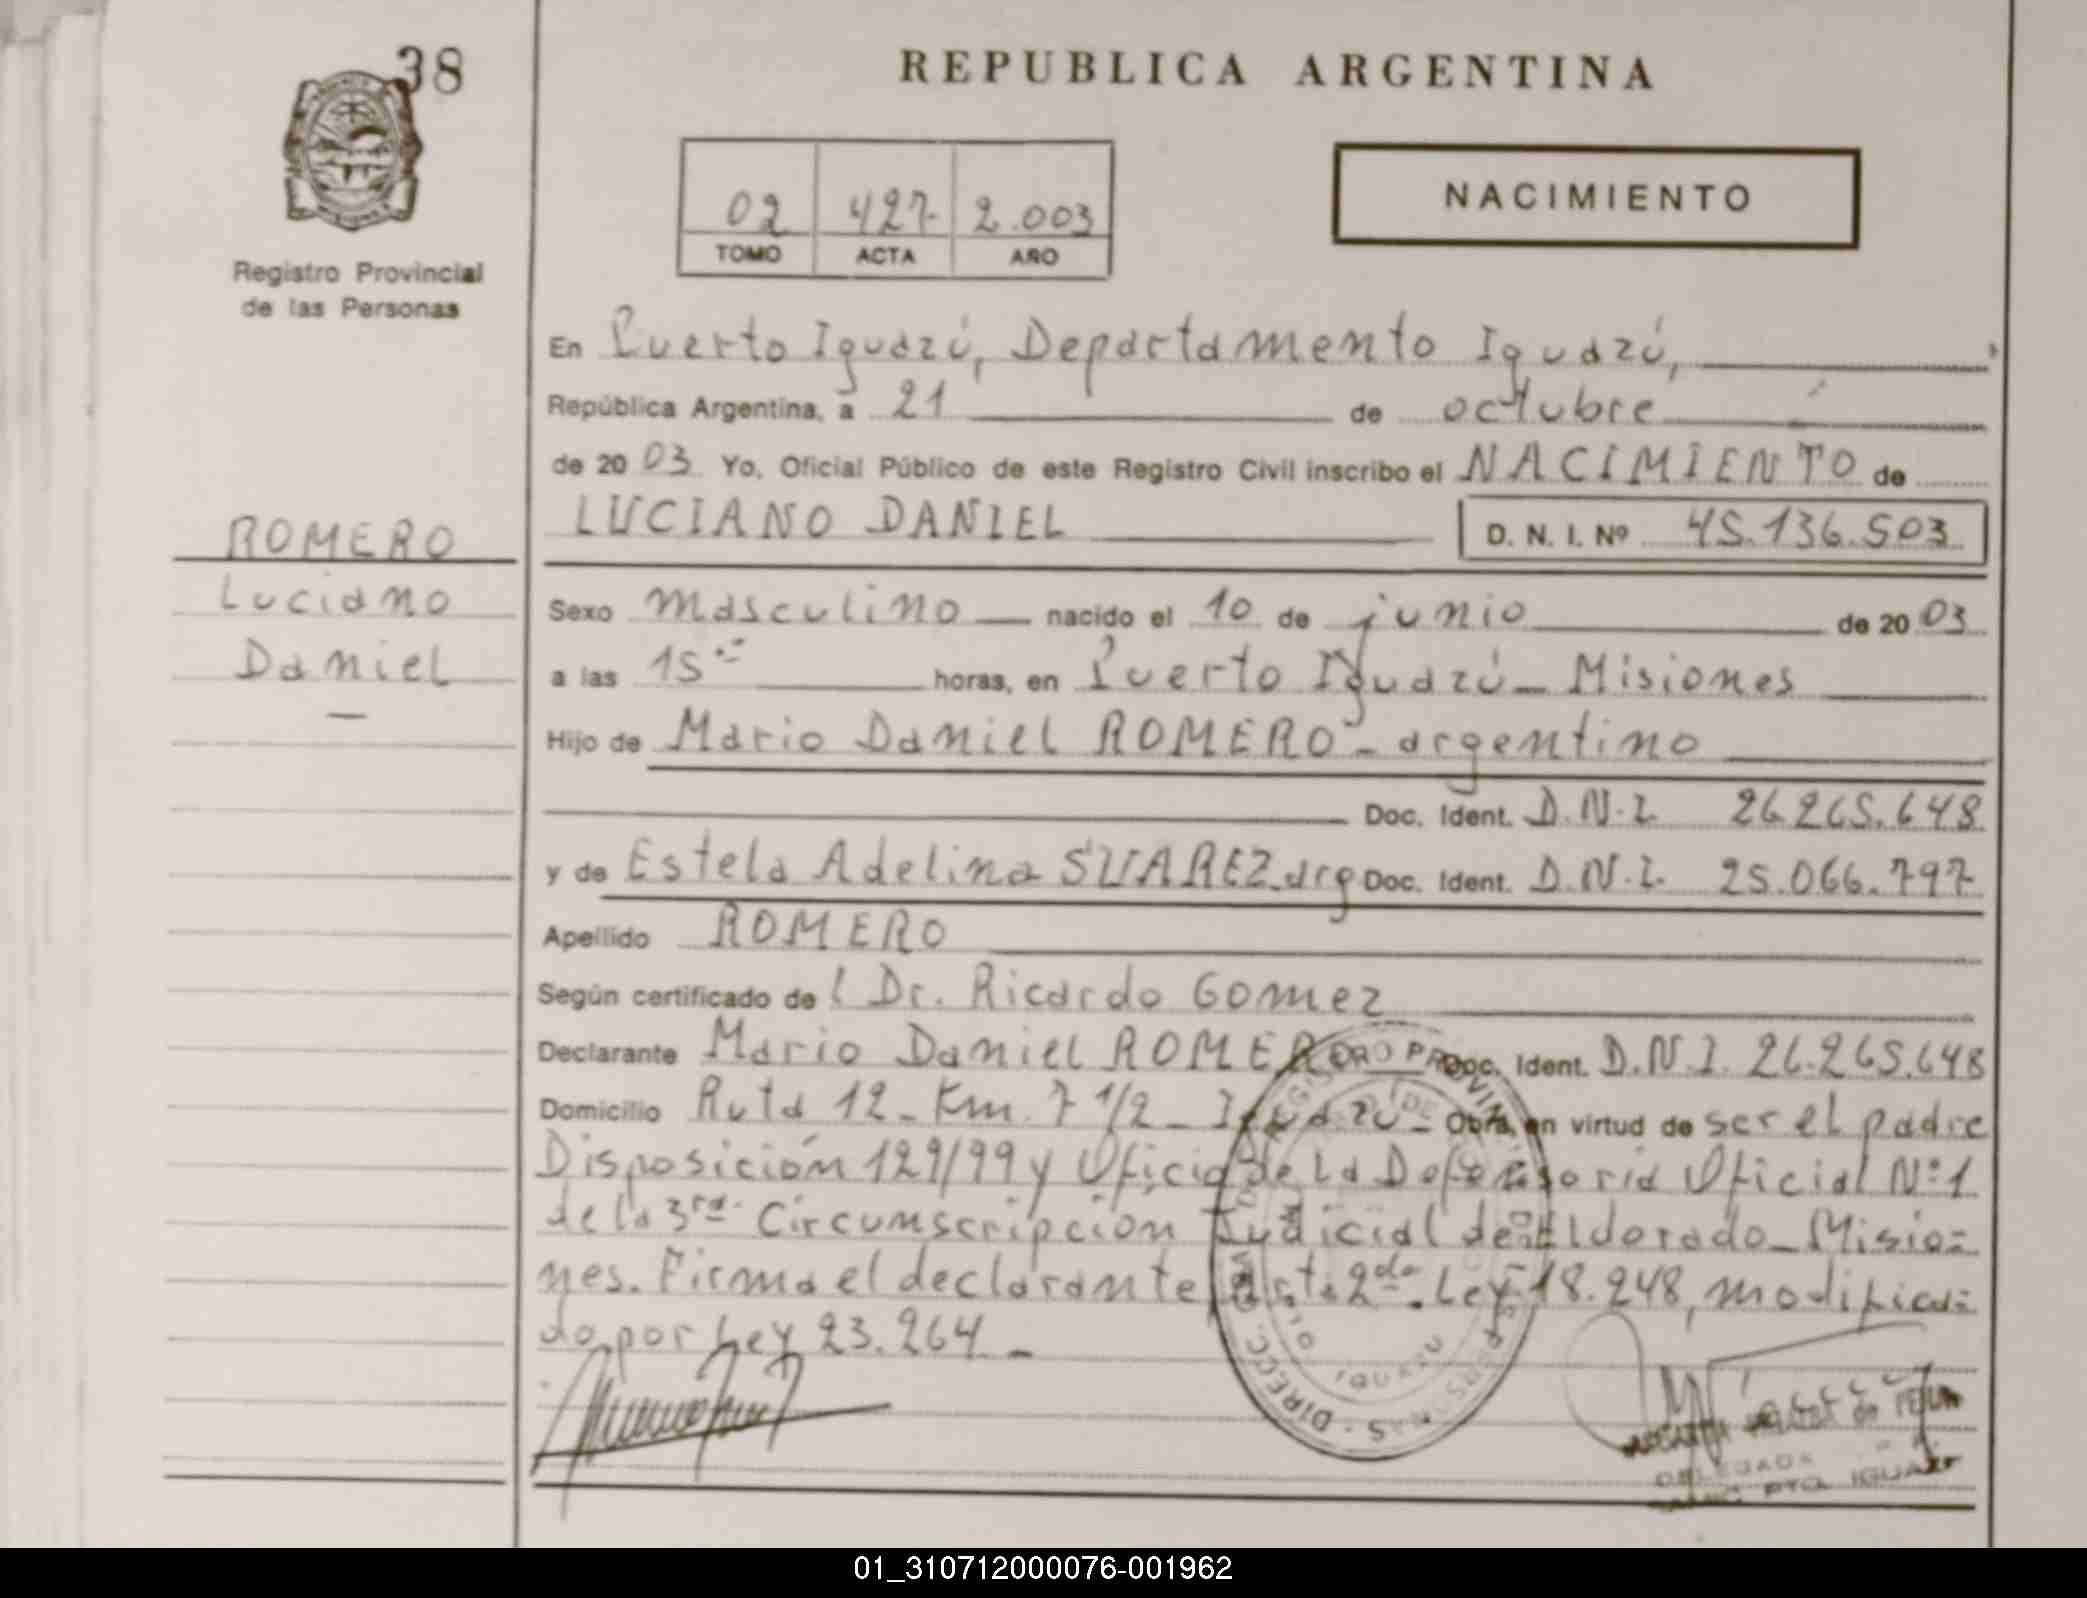 38
REPUBLICA ARGENTINA
02 427 2.003
TOMO ACTA AÑO
NACIMIENTO
Registro Provincial
de las Personas
ROMERO
Luciano
Daniel
En Puerto Iguazú, Departamento Iguazú,
República Argentina, a 21 de octubre
de 2003 Yo, Oficial Público de este Registro Civil inscribo el NACIMIENTO de
LUCIANO DANIEL D. N. I. Nº 45.136.503
Sexo masculino nacido el 10 de junio de 2003
a las 15 horas, en Puerto Iguazú - Misiones
Hijo de Mario Daniel ROMERO - argentino
Doc. Ident. D.N.I. 26.265.648
y de Estela Adelina SUAREZ - arg Doc. Ident. D.N.I. 25.066.797
Apellido ROMERO
Según certificado del Dr. Ricardo Gomez
Declarante Mario Daniel ROMERO Doc. Ident. D.N.I. 26.265.648
Domicilio Ruta 12 - Km. 7 1/2 - Iguazú - Obra, en virtud de ser el padre
Disposición 129/99 y Oficio de la Defensoría Oficial Nº 1
de la 3ra. Circunscripción Judicial de Eldorado - Misio=
nes. Firma el declarante, Art. 2do. Ley 18.248, modifica=
do por Ley 23.264 -
IGUAZU
DELEGADA
PTO. IGUAZU
01_310712000076-001962